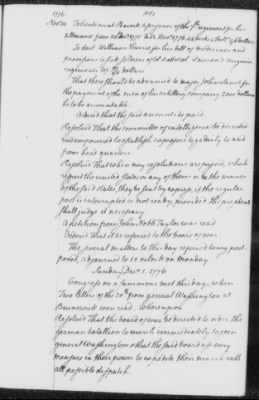 1776.
Nov. 30.
To lieutenant Peacock a prisoner of the 7th. regiment for his
allowance from
To doct William Currie for his bill of medicines and
regiment: 67. dollars
That there should be advanced to major John
for the payment of the men of his artillery company 2000 dollars
he to be accountable.
Ordered that the said accounts be paid.
Resolved That the committee of intelligence be directed
and empowered to establish expresses to go daily to and
from head quarters.
Resolved That when any resolutions are passed, which
respect the united states or any of them or be the armies
of the said states, they be sent by express, if the regular
post is interrupted or not ready, provided the president
shall judge it necessary.
A petition from John Dodd Taylor was read
Ordered That it be referred to the board of war.
The several matters to this day referred being post
poned, adjourned to 10 oclock on monday.
Sunday Decr. 1. 1776
Congress on a summons met this day, when
Two letters of the 30th. from general Washington at
Brunswick were read, Whereupon
Resolved That the board of war be directed to order the
german batallion to march immediately to join
general Washington & that the said board use every
measure in their power to expedite their march with
all possible despatch.